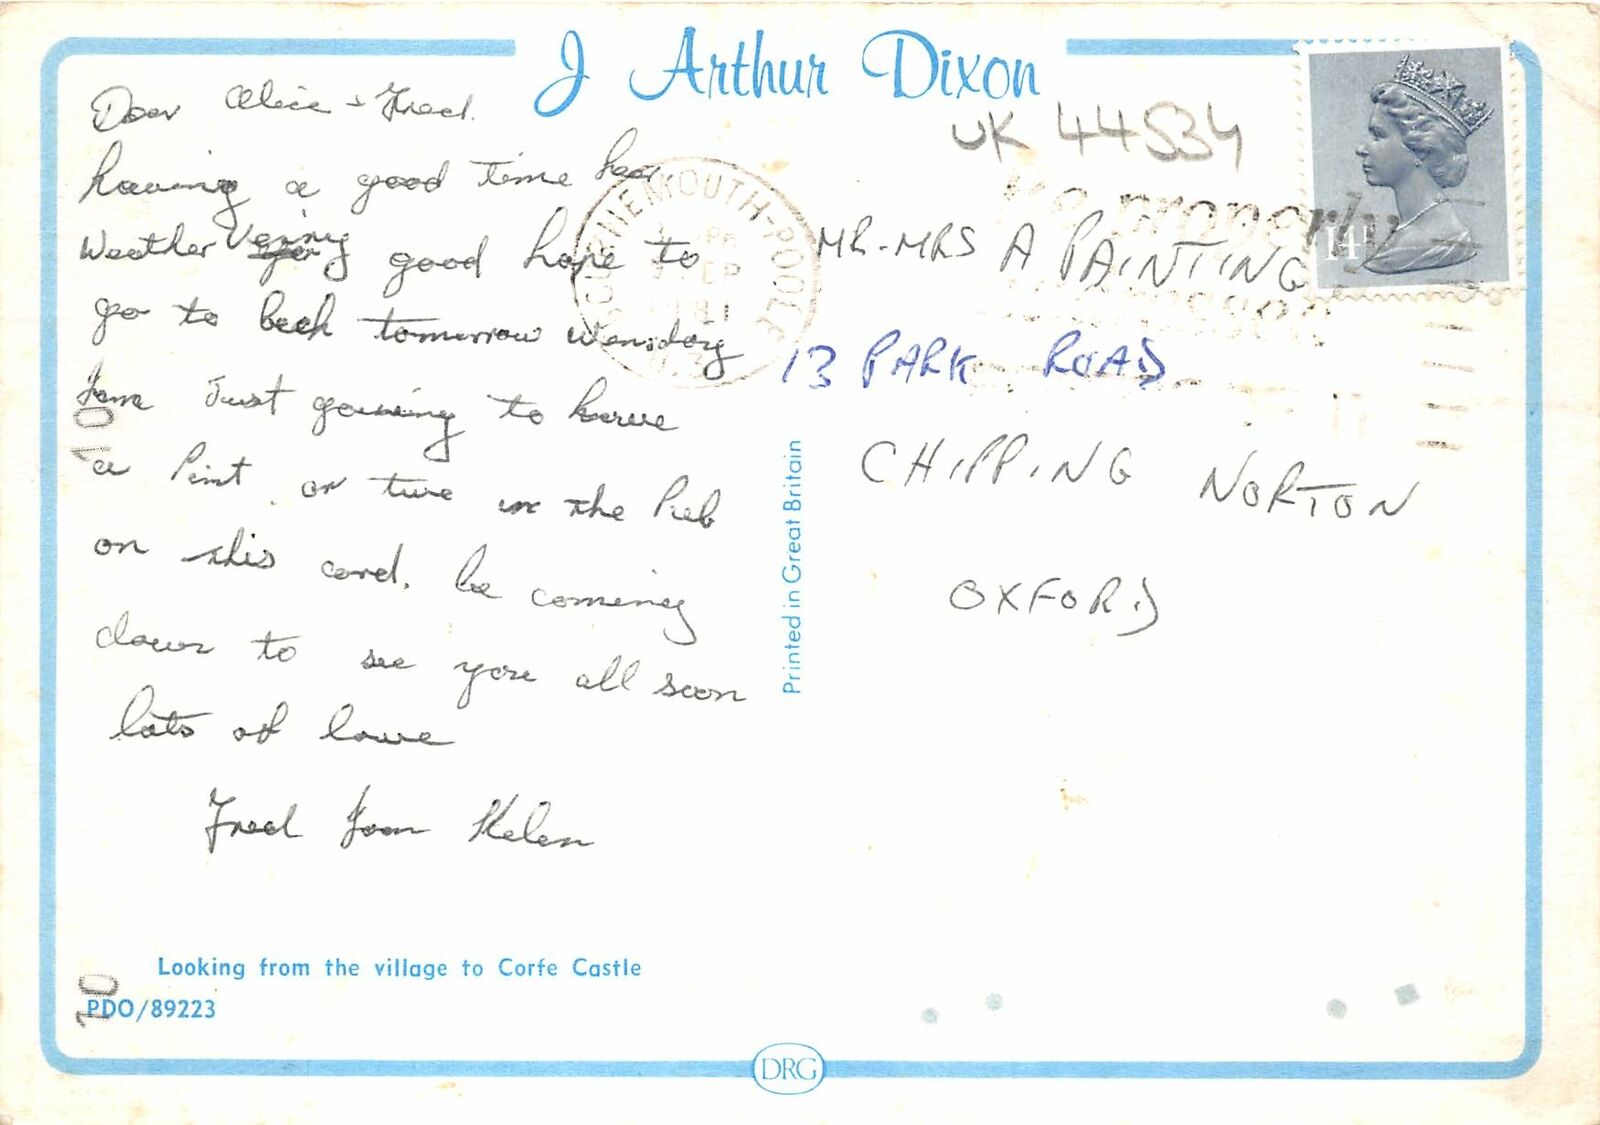 J Arthur Dixon
Dear Alice + Fred.
having a good time hear
Weather Vering good hope to
go to beeh tomorrow Wensday
Just gowing to have
a Pint or two in the Pub
on this card. be coming
down to see you all soon
lots of love
Fred Joan Helen
Looking from the village to Corfe Castle
PDO/89223
10
10
Printed in Great Britain
DRG
UK 44534
BOURNEMOUTH-POOLE
SEP
1981
properly
14P
MR-MRS A PAINTING
13 PARK ROAD
CHIPPING NORTON
OXFORD